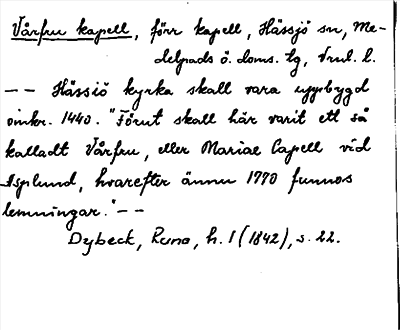 Vårfru kapell, förr kapell, Hässjö sn, Me-
delpads ö. doms. tg, Vnrl. l.
-- Hässiö kyrka skall vara uppbygd
omkr. 1440. "Förut skall här varit ett så
kalladt Vårfru, eller Mariae Capell vid
Asplund, hvarefter ännu 1770 funnos
lemningar." --
Dybeck, Runa, h. 1 (1842), s. 22.